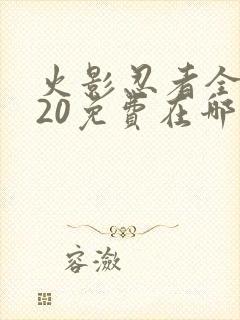 火影忍者全
20免费在哪
容潋